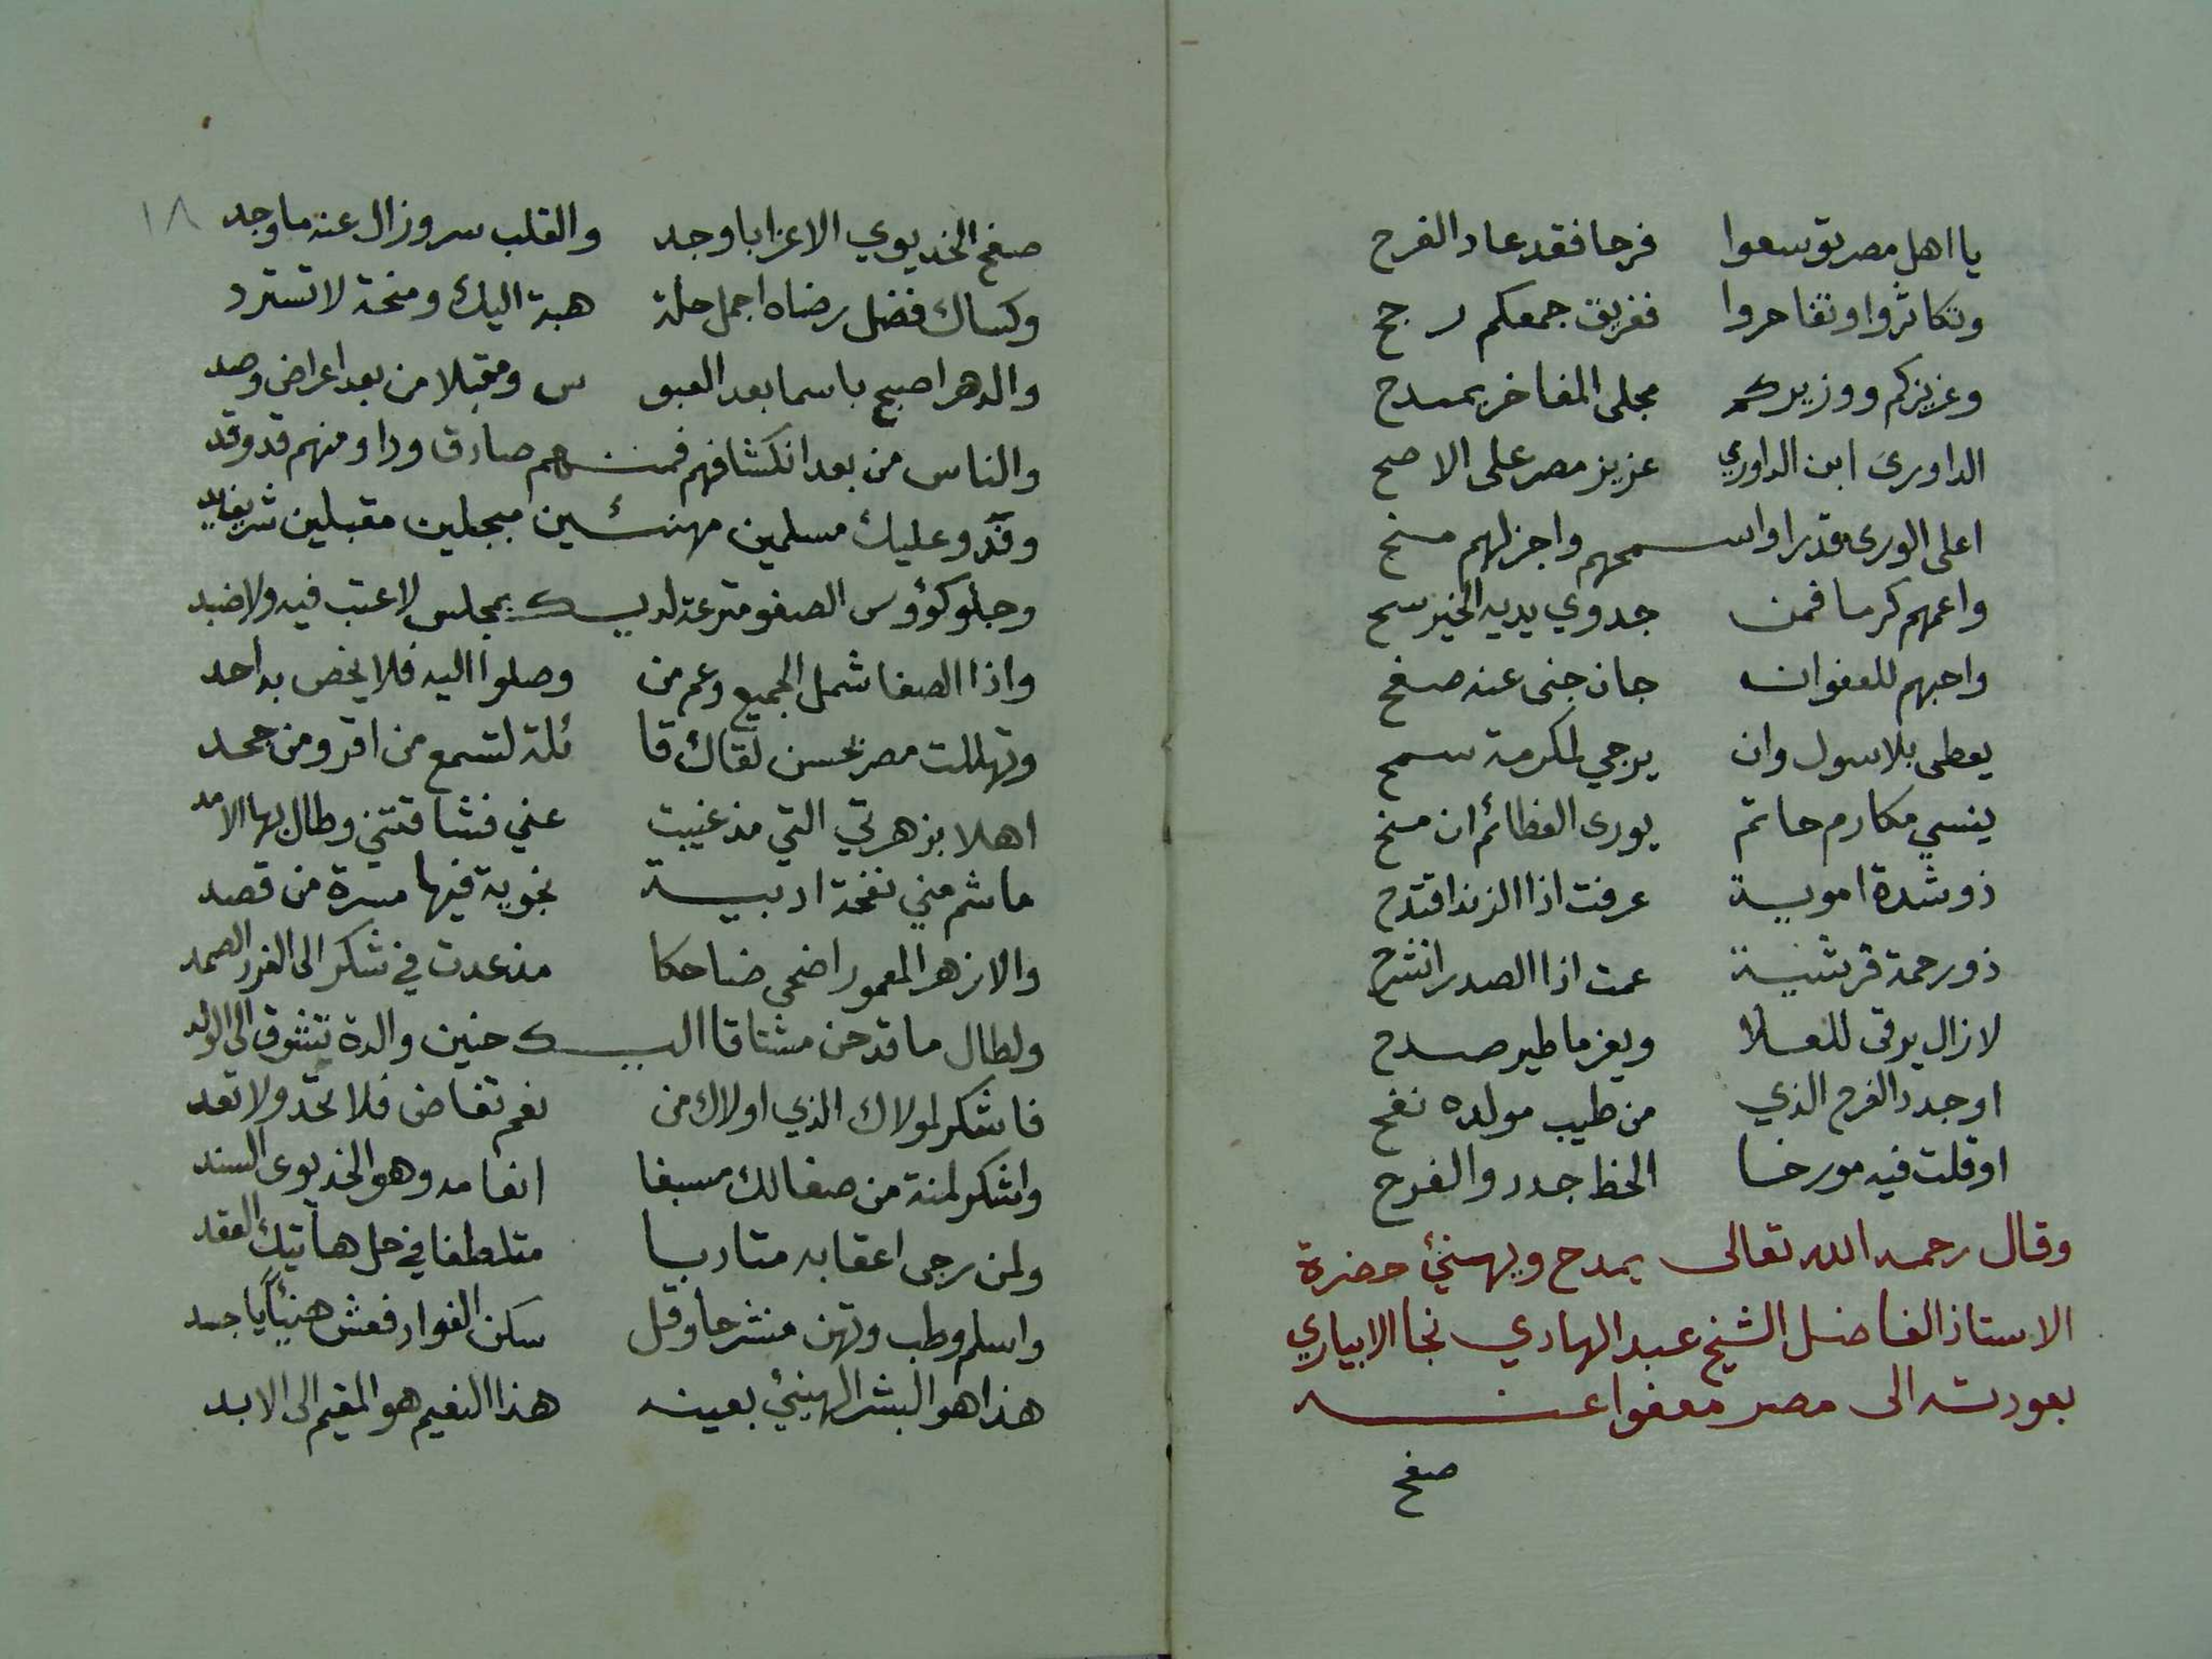 يا اهل مصر توسعوا فرحا فقد عاد الفرح
وتكاثروا وتفاخروا ففريق جمعكم رجح
وعزيزكم ووزيركم مجلى المفاخر يمتدح
الداورى ابن الداوري عزيز مصر على الاصح
اعلى الورى قدرا واسمحهم واجزلهم منح
واعمهم كرما فمن جدوي يديه الخير سح
واحبهم للعفو انه جان جنى عنه صفح
يعطى بلا سول وان يرجي لمكرمة سمح
ينسي مكارم حاتم يورى العظائم ان منح
ذو شدة اموية عرفت اذا الزند اقتدح
ذو رحمة قرشية عمت اذا الصدر انشرح
لا زال يرقى للعلا ويعز ما طير صدح
او جدد الفرح الذي من طيب مولده نفح
او قلت فيه مورخا الحظ جدد والفرح
وقال رحمه الله تعالى يمدح ويهنئ حضرة
الاستاذ الفاضل الشيخ عبد الهادي نجا الابياري
بعودته الى مصر معفوا عنه
صفح
١٨
صفح الخديوي الاعز ابا وجد والقلب سر وزال عنه ما وجد
وكساك فضل رضاه اجمل حلة هبة اليك ومنحة لا تسترد
والدهر اصبح باسما بعد العبوس ومقبلا من بعد اعراض وصد
والناس من بعد انكشافهم فمنهم صادق ودا ومنهم قد وقد
وفدو عليك مسلمين مهنئين مبجلين مقبلين شريف يد
وجلو كؤوس الصفو مترعة لديك بمجلس لا عتب فيه ولا ضد
واذا الصفا شمل الجميع وعم من وصلوا اليه فلا يخص به احد
وتهللت مصر بحسن لقاك قائلة لتسمع من اقر ومن جحد
اهلا بزهرتي التي مذ غيبت عني فشاقتني وطال بها الامد
ما شم مني نفحة ادبية نجوية فيها مسرة من قصد
والازهر المعمور اضحى ضاحكا مذ عدت في شكر الى الفرد الصمد
ولطال ما قد حن مشتاقا اليك حنين والدة تشوق الى الولد
فاشكر لمولاك الذي اولاك من نعم تفاض فلا تحد ولا تعد
واشكر لمنة من صفا لك مسبغا انعامه وهو الخديوى السند
ولمن رجى اعقابه متادبا متلطفا في حل هاتيك العقد
واسلم وطب وتهن منشرحا وقل سكن الفواد فعش هنيئا يا جسد
هذا هو البشر الهنيئ بعينه هذا النعيم هو المقيم الى الابد